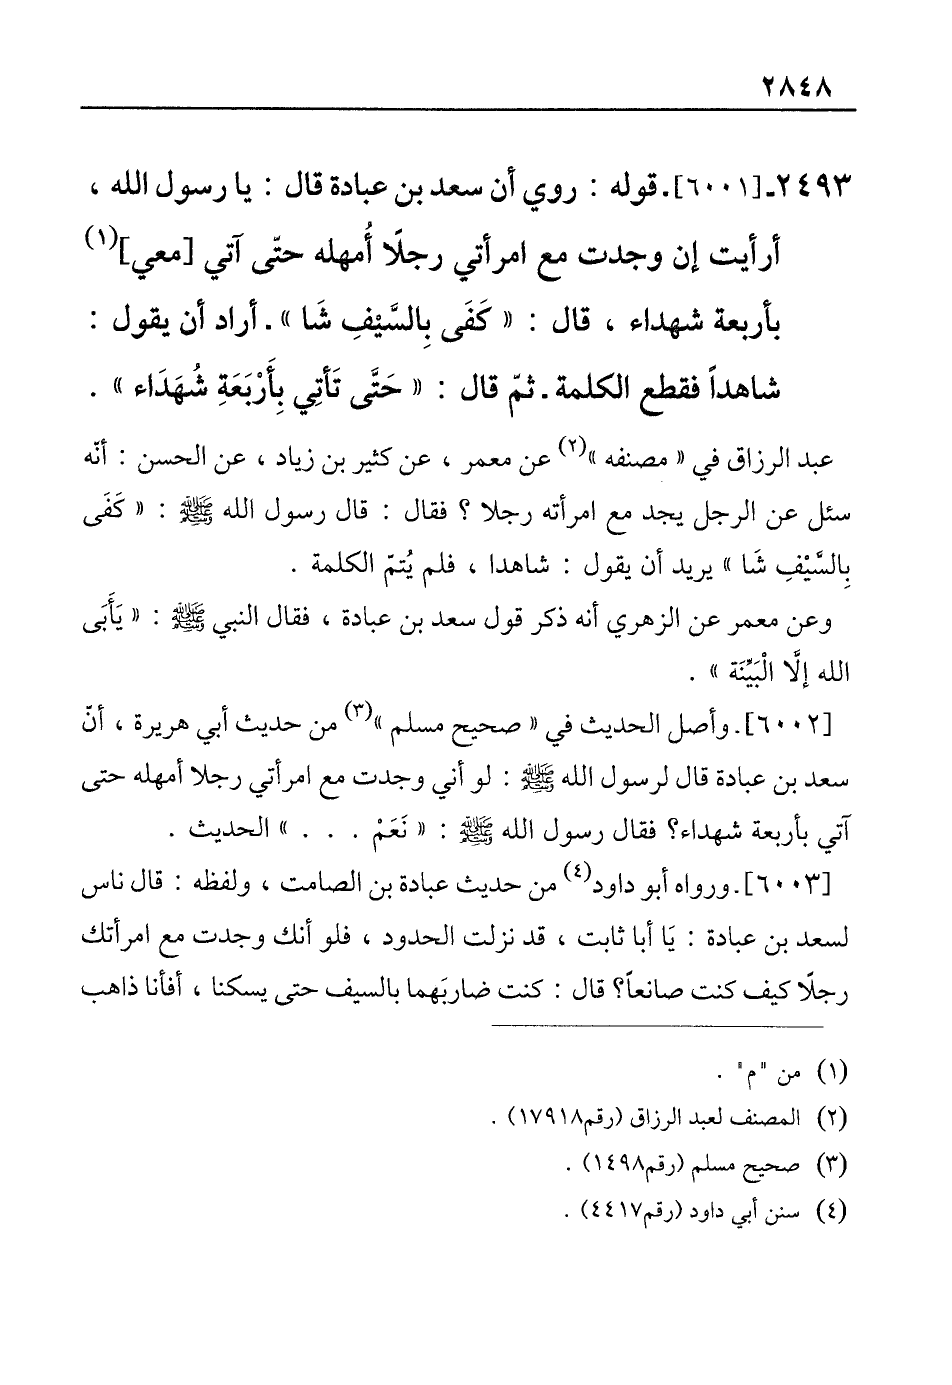 ٢٨٤٨
٢٤٩٣ـ[٦٠٠١].قوله : روي أن سعد بن عبادة قال : يا رسول الله ،
أرأيت إن وجدت مع امرأتي رجلًا أُمهله حتّى آتي [معي](١)
بأربعة شهداء ، قال : « كَفَى بِالسَّيْفِ شَا » . أراد أن يقول :
شاهداً فقطع الكلمة . ثمّ قال : « حَتَّى تَأتِي بِأَرْبَعَةِ شُهَدَاء » .
عبد الرزاق في « مصنفه »(٢) عن معمر ، عن كثير بن زياد ، عن الحسن : أنّه
سئل عن الرجل يجد مع امرأته رجلا ؟ فقال : قال رسول الله ﷺ : « كَفَى
بِالسَّيْفِ شَا » يريد أن يقول : شاهدا ، فلم يُتمّ الكلمة .
وعن معمر عن الزهري أنه ذكر قول سعد بن عبادة ، فقال النبي ﷺ : « يَأَبَى
الله إلَّا الْبَيِّنَة » .
[٦٠٠٢].وأصل الحديث في « صحيح مسلم »(٣) من حديث أبي هريرة ، أنّ
سعد بن عبادة قال لرسول الله ﷺ : لو أني وجدت مع امرأتي رجلا أمهله حتى
آتي بأربعة شهداء؟ فقال رسول الله ﷺ : « نَعَمْ . . . » الحديث .
[٦٠٠٣].ورواه أبو داود(٤) من حديث عبادة بن الصامت ، ولفظه : قال ناس
لسعد بن عبادة : يَا أبا ثابت ، قد نزلت الحدود ، فلو أنك وجدت مع امرأتك
رجلًا كيف كنت صانعاً؟ قال : كنت ضاربَهما بالسيف حتى يسكنا ، أفأنا ذاهب
(١) من "م" .
(٢) المصنف لعبد الرزاق (رقم١٧٩١٨) .
(٣) صحيح مسلم (رقم١٤٩٨) .
(٤) سنن أبي داود (رقم٤٤١٧) .